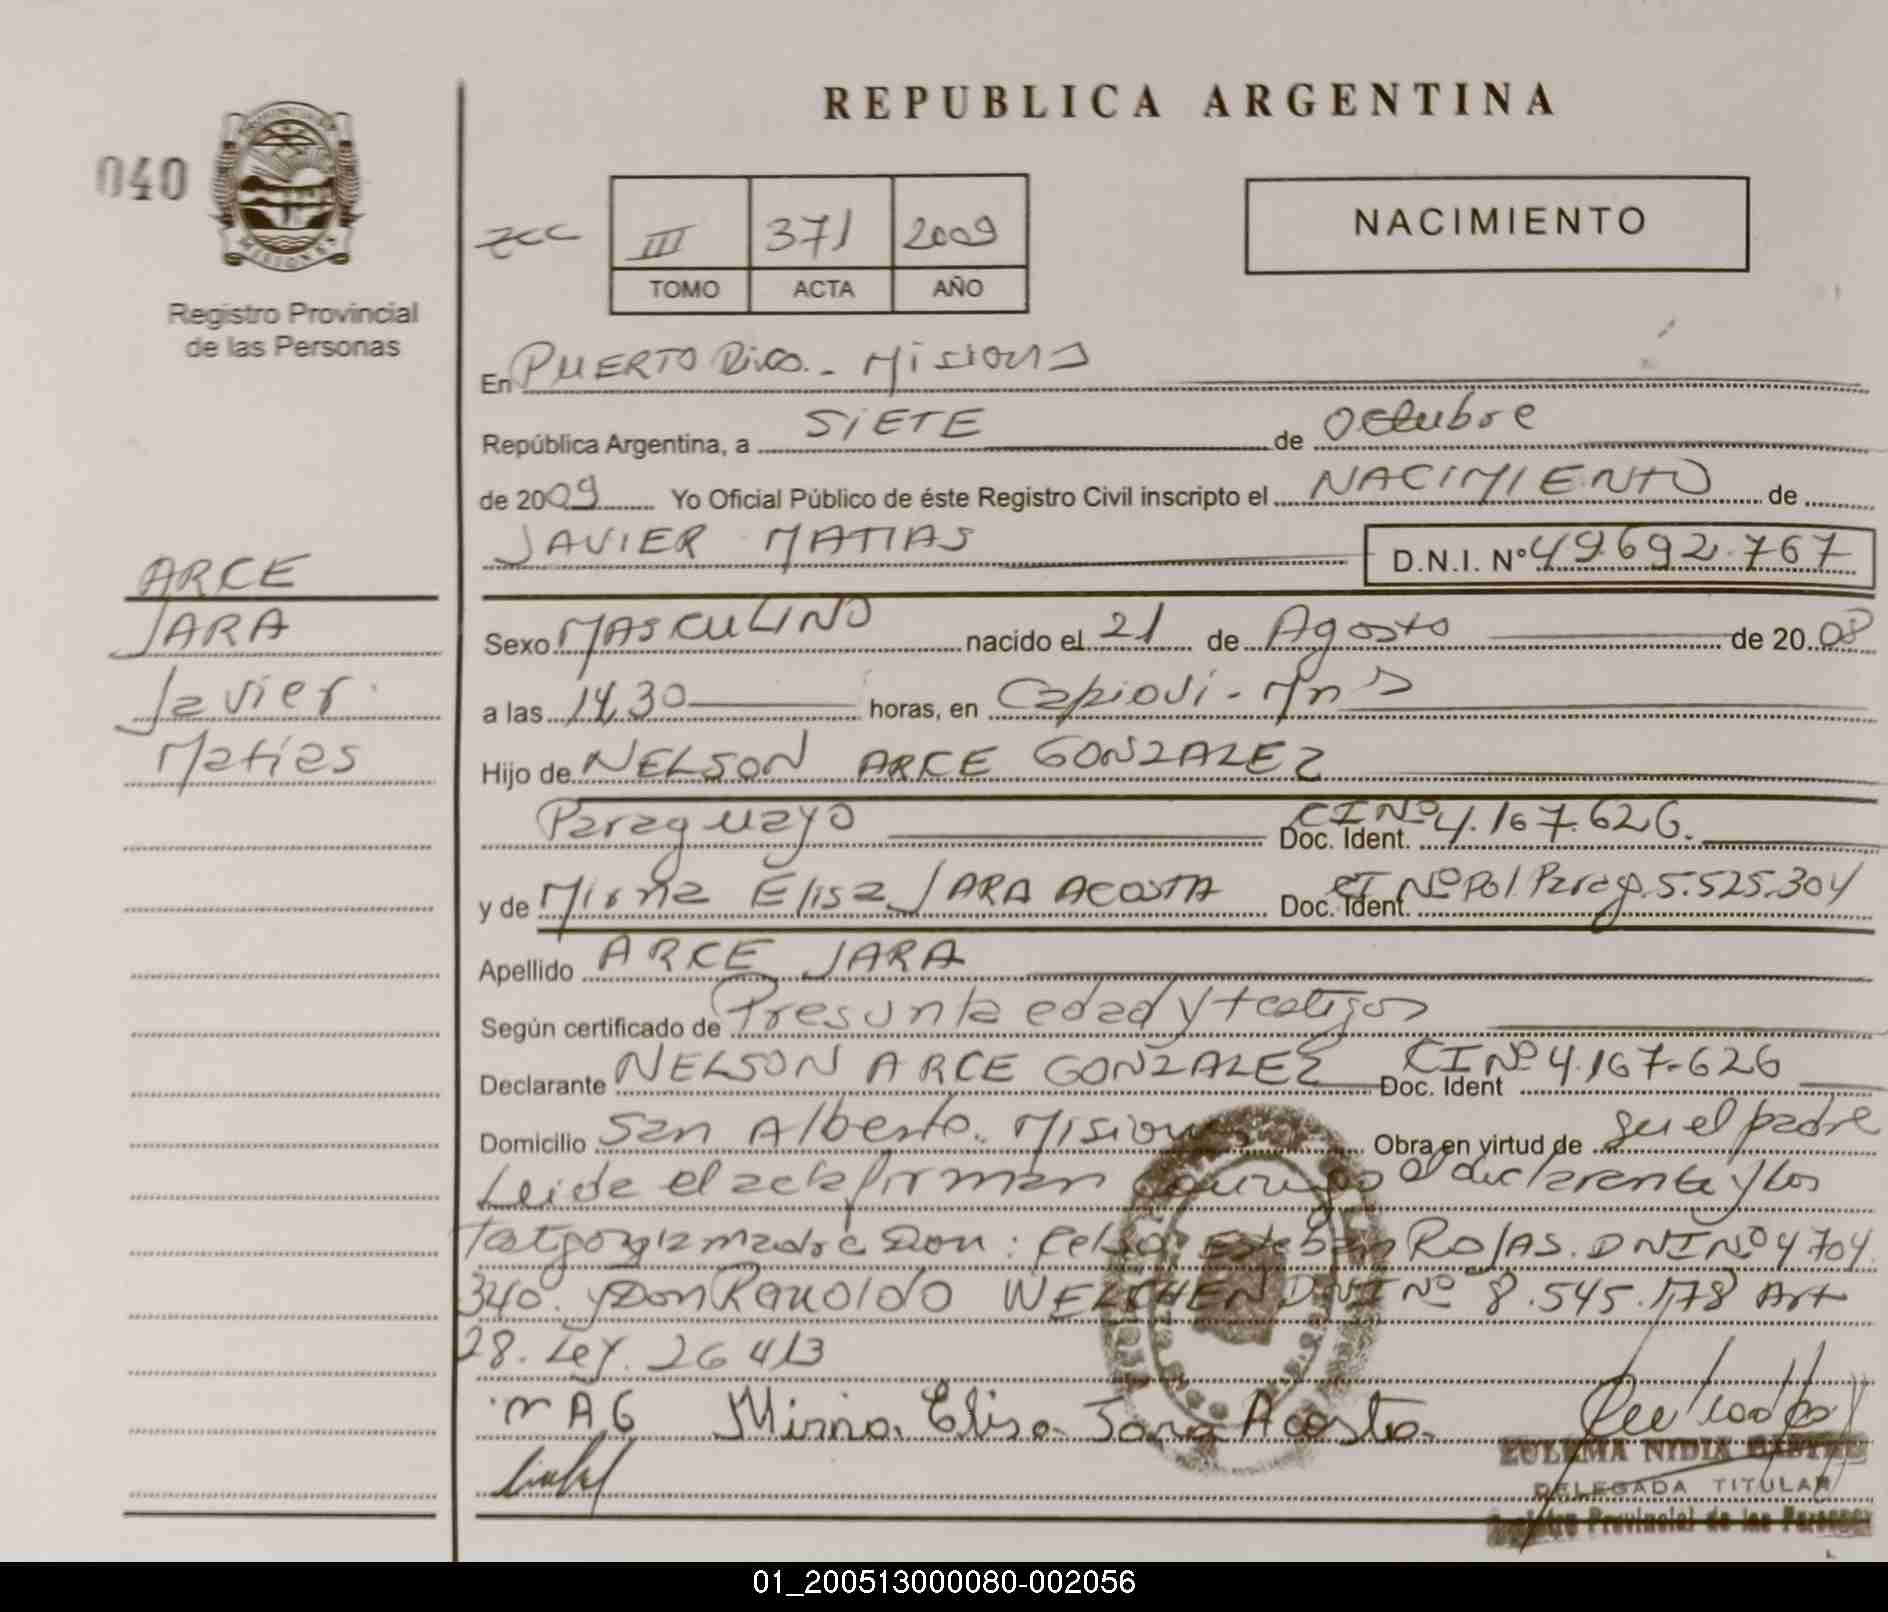 REPUBLICA ARGENTINA
040
MISIONES
Registro Provincial
de las Personas
III 371 2009
TOMO ACTA AÑO
NACIMIENTO
En PUERTO Rico.- Misiones
República Argentina, a SIETE de Octubre
de 2009 Yo Oficial Público de éste Registro Civil inscripto el NACIMIENTO de
JAVIER MATIAS D.N.I. Nº 49.692.767
ARCE
JARA
Javier
Matías
Sexo MASCULINO nacido el 21 de Agosto de 2008
a las 14,30 horas, en Capioví - Mnes
Hijo de NELSON ARCE GONZALEZ
Paraguayo Doc. Ident. CI Nº 4.167.626.
y de Mirna Elisa JARA ACOSTA Doc. Ident. CI Nº Pol. Parag. 5.525.304
Apellido ARCE JARA
Según certificado de Presunta edad y testigos
Declarante NELSON ARCE GONZALEZ Doc. Ident CI Nº 4.167-626
Domicilio San Alberto. Misiones Obra en virtud de ser el padre
Leida el acta firman conmigo el declarante y los
testigos y la madre Don: Esteban ROJAS. DNI Nº 4704.
340. y Don WELCHEN DNI Nº 8.545.178 Art
28. Ley. 26413
NAG Mirna Elisa Jara Acosta.
ZULEMA NIDIA
DELEGADA TITULAR
Registro Provincial de las Personas
01_200513000080-002056